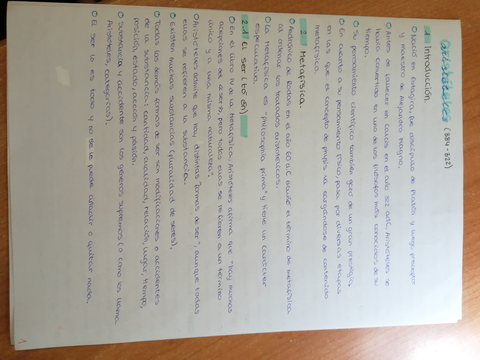 Aristóteles (384-322)
1. Introducción.
Nació en Estagira, fue discípulo de Platón y luego preceptor
y maestro de Alejandro Magno.
Antes de fallecer en Calcis en el año 322 a.C, Aristóteles se
había convertido en uno de los filósofos más conocidos de su
tiempo.
Su pensamiento científico también gozó de un gran prestigio.
En cuanto a su pensamiento físico, pasa por diversas etapas
en las que el concepto de physis va cargándose de contenido
metafísico.
2. Metafísica.
Andrónico de Rodas en el año 60 a.C acuñó el término de metafísica
al ordenar los tratados aristotélicos.
La metafísica es "philosophia prima" y tiene un carácter
especulativo.
2.1 El ser (tò ón)
En el libro IV de la Metafísica, Aristóteles afirma que "hay muchas
acepciones del ser, pero todas ellas se refieren a un término
único y una misma naturaleza".
Aristóteles afirma que hay distintas "formas de ser", aunque todas
ellas se refieren a la substancia.
Existen muchas substancias (pluralidad de seres).
Todas las demás formas de ser son modificaciones o accidentes
de la substancia: cantidad, cualidad, relación, lugar, tiempo,
posición, estado, acción y pasión.
Substancia y accidente son los géneros supremos (o como los llama
Aristóteles, categorías).
El ser lo es todo y no se le puede añadir o quitar nada.
1